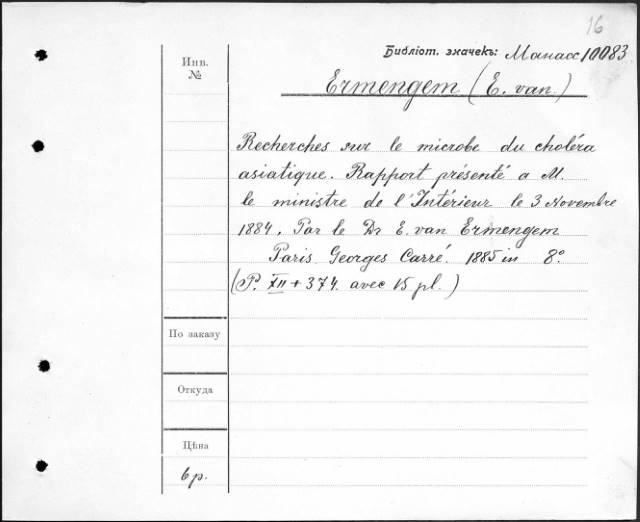 16
Библіот. значекъ: Манасс 10083
Инв.
№
Ermengem (E. van.)
Recherches sur le microbe du choléra
asiatique. Rapport présenté a M.
le ministre de l'Intérieur le 3 Novembre
1884. Par le Dr E. van Ermengem
Paris. Georges Carré. 1885 in 8°.
(P. XII + 374. avec 15 pl.)
По заказу
Откуда
Цѣна
6 р.